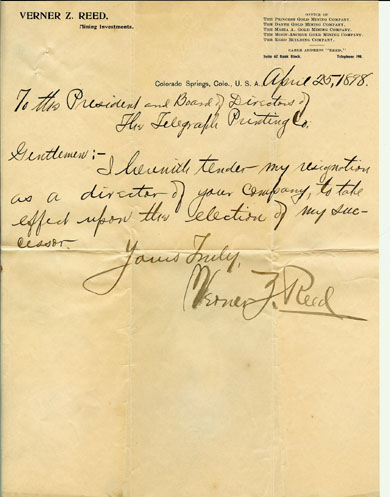 VERNER Z. REED.
Mining Investments.
OFFICE OF
THE PRINCESS GOLD MINING COMPANY.
THE DANTE GOLD MINING COMPANY.
THE MARIA A. GOLD MINING COMPANY.
THE MOON-ANCHOR GOLD MINING COMPANY.
THE KORD BUILDING COMPANY.
CABLE ADDRESS "REED."
Suite 67 Bank Block.
Telephone
Colorado Springs, Colo., U. S. A. April 25, 1898.
To the President and Board of Directors of
The Telegraph Printing Co.
Gentlemen:-
I herewith tender my resignation
as a director of your company, to take
effect upon the election of my suc-
cessor.
Yours Truly,
Verner Z. Reed